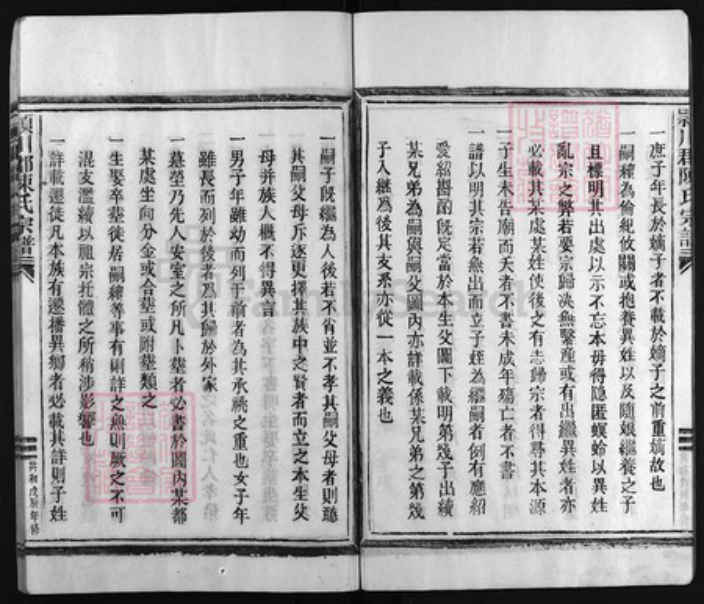 潁川郡陳氏宗譜
一庶子年長於嫡子者不載於嫡子之前重嫡故也
一嗣續為倫紀攸關或抱養異姓以及隨娘繼養之子
且標明其出處以示不忘本毋得隱匿螟蛉以異姓
亂宗之弊若要宗歸決無繫產或有出繼異姓者亦
必載其某處某姓使後之有志歸宗者得尋其本源
一子生未告廟而夭者不書未成年殤亡者不書
一譜以明其宗若無出而立子姪為繼嗣者例有應紹
愛紹斟酌既定當於本生父圖下載明第幾子出續
某兄弟為嗣與嗣父圖內亦詳載係某兄弟之第幾
子入継為後其支系亦從一本之義也
一嗣子既繼為人後若不肖並不孝其嗣父母者則聽
其嗣父母斥逐更擇其族中之賢者而立之本生父
母并族人概不得異言
一男子年雖幼而列于前者為其承祧之重也女子年
雖長而列於後者為其歸於外家
一墓塋乃先人安室之所凡卜塟者必書於圖內某都
某處坐向分金或合塟或附塟類之
一生娶卒塟徒居嗣續等事有則詳之無則厥之不可
混支濫續以祖宗托體之所稍涉影響也
一詳載遷徒凡本族有遷播異鄉者必載其詳則子姓
潁川郡陳氏宗譜
共和戊辰年修
FamilySearch